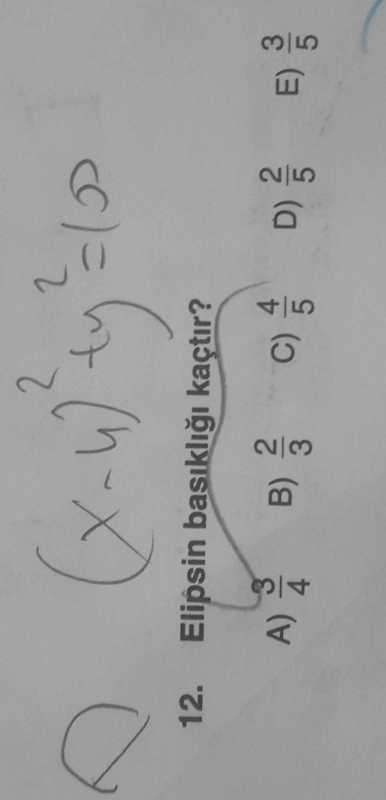 (x-4)² + y² = 10
12. Elipsin basıklığı kaçtır?
A) 3/4 B) 2/3 C) 4/5 D) 2/5 E) 3/5